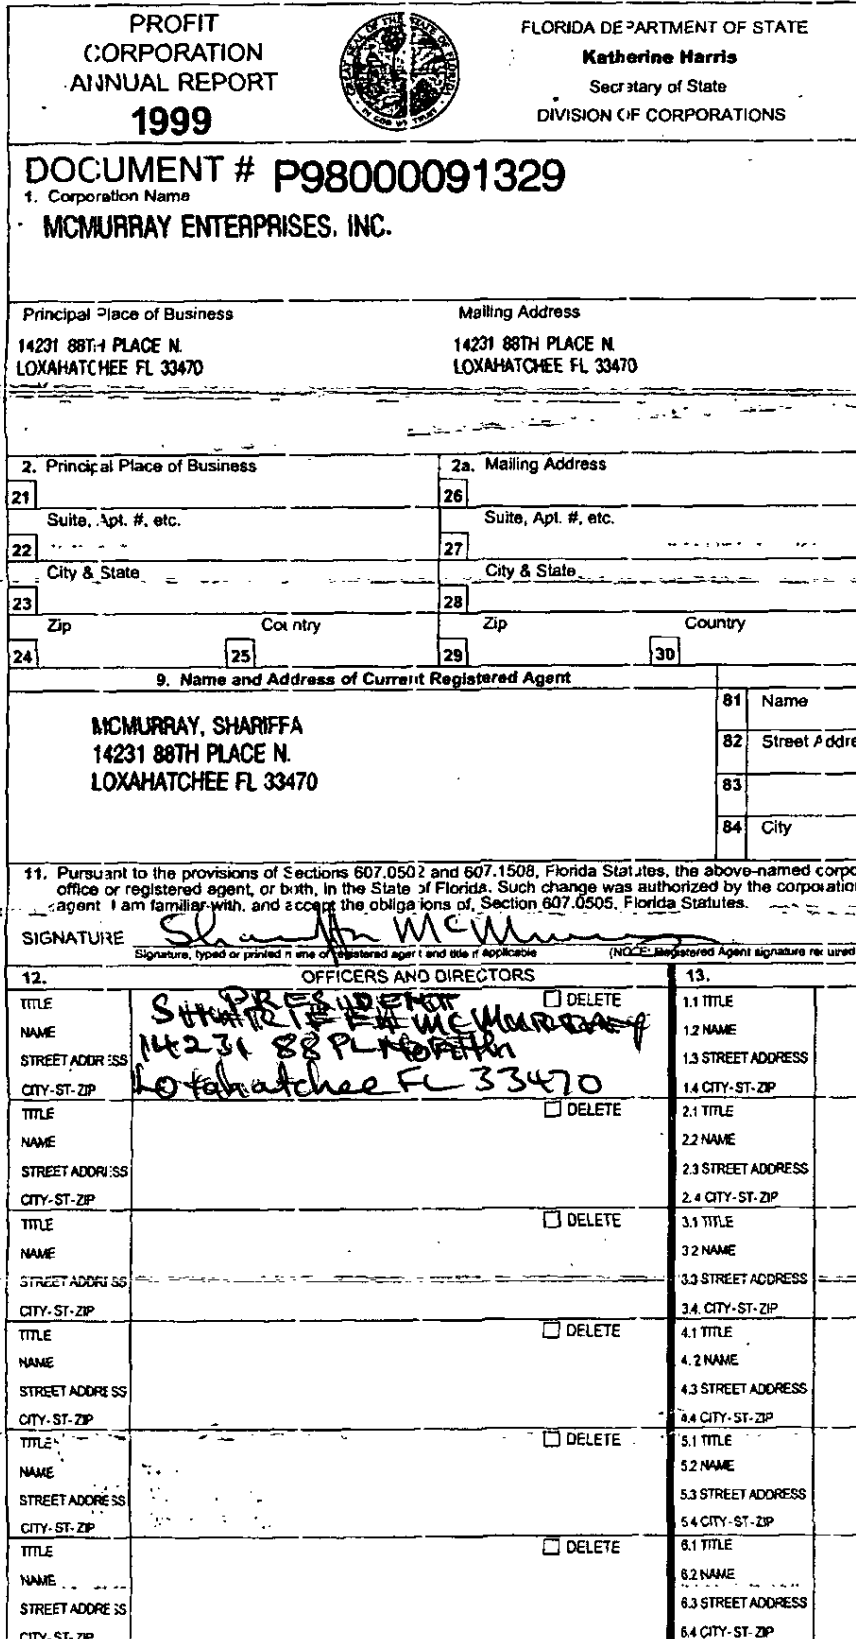 PROFIT
CORPORATION
ANNUAL REPORT
1999
FLORIDA DEPARTMENT OF STATE
Katherine Harris
Secretary of State
DIVISION OF CORPORATIONS
DOCUMENT # P98000091329
1. Corporation Name
MCMURRAY ENTERPRISES, INC.
Principal Place of Business
Mailing Address
14231 88TH PLACE N.
LOXAHATCHEE FL 33470
14231 88TH PLACE N.
LOXAHATCHEE FL 33470
2. Principal Place of Business
2a. Mailing Address
21
26
Suite, Apt. #, etc.
Suite, Apt. #, etc.
22
27
City & State
City & State
23
28
Zip
Country
Zip
Country
24
25
29
30
9. Name and Address of Current Registered Agent
MCMURRAY, SHARIFFA
14231 88TH PLACE N.
LOXAHATCHEE FL 33470
81 Name
82 Street Addre
83
84 City
11. Pursuant to the provisions of Sections 607.0502 and 607.1508, Florida Statutes, the above-named corpo
office or registered agent, or both, in the State of Florida. Such change was authorized by the corporation
agent I am familiar with, and accept the obligations of, Section 607.0505, Florida Statutes.
SIGNATURE Shariffa McMurray
Signature, typed or printed name of registered agent and title if applicable
(NOTE: Registered Agent signature required
12. OFFICERS AND DIRECTORS
13.
TITLE PRESIDENT DELETE
NAME MCMURRAY
STREET ADDRESS 14231 88 PL North
CITY-ST-ZIP Loxahatchee FL 33470
1.1 TITLE
1.2 NAME
1.3 STREET ADDRESS
1.4 CITY-ST-ZIP
TITLE DELETE
NAME
STREET ADDRESS
CITY-ST-ZIP
2.1 TITLE
2.2 NAME
2.3 STREET ADDRESS
2.4 CITY-ST-ZIP
TITLE DELETE
NAME
STREET ADDRESS
CITY-ST-ZIP
3.1 TITLE
3.2 NAME
3.3 STREET ADDRESS
3.4. CITY-ST-ZIP
TITLE DELETE
NAME
STREET ADDRESS
CITY-ST-ZIP
4.1 TITLE
4.2 NAME
4.3 STREET ADDRESS
4.4 CITY-ST-ZIP
TITLE DELETE
NAME
STREET ADDRESS
CITY-ST-ZIP
5.1 TITLE
5.2 NAME
5.3 STREET ADDRESS
5.4 CITY-ST-ZIP
TITLE DELETE
NAME
STREET ADDRESS
CITY-ST-ZIP
6.1 TITLE
6.2 NAME
6.3 STREET ADDRESS
6.4 CITY-ST-ZIP